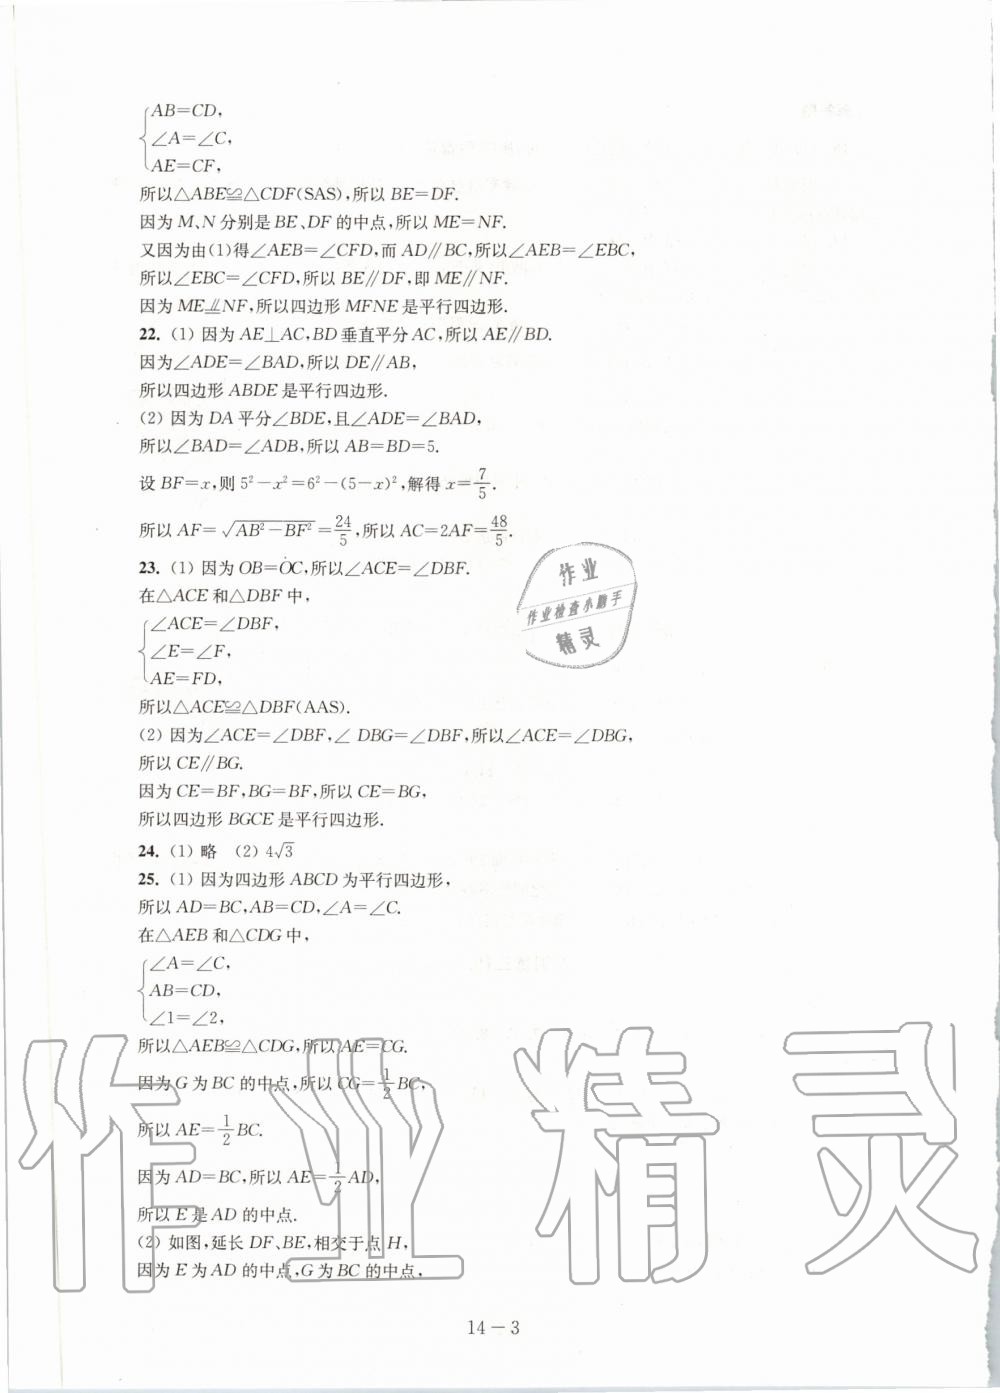 AB=CD,
∠A=∠C,
AE=CF,
所以△ABE≌△CDF(SAS),所以 BE=DF.
因为 M、N 分别是 BE、DF 的中点,所以 ME=NF.
又因为由(1)得∠AEB=∠CFD,而 AD∥BC,所以∠AEB=∠EBC,
所以∠EBC=∠CFD,所以 BE∥DF,即 ME∥NF.
因为 ME⫽NF,所以四边形 MFNE 是平行四边形.
22. (1) 因为 AE⊥AC,BD 垂直平分 AC,所以 AE∥BD.
因为∠ADE=∠BAD,所以 DE∥AB,
所以四边形 ABDE 是平行四边形.
(2) 因为 DA 平分∠BDE,且∠ADE=∠BAD,
所以∠BAD=∠ADB,所以 AB=BD=5.
设 BF=x,则 5²-x²=6²-(5-x)²,解得 x=7/5.
所以 AF=√(AB²-BF²)=24/5,所以 AC=2AF=48/5.
23. (1) 因为 OB=OC,所以∠ACE=∠DBF.
在△ACE 和△DBF 中,
∠ACE=∠DBF,
∠E=∠F,
AE=FD,
所以△ACE≌△DBF(AAS).
(2) 因为∠ACE=∠DBF,∠ DBG=∠DBF,所以∠ACE=∠DBG,
所以 CE∥BG.
因为 CE=BF,BG=BF,所以 CE=BG,
所以四边形 BGCE 是平行四边形.
24. (1) 略 (2) 4√3
25. (1) 因为四边形 ABCD 为平行四边形,
所以 AD=BC,AB=CD,∠A=∠C.
在△AEB 和△CDG 中,
∠A=∠C,
AB=CD,
∠1=∠2,
所以△AEB≌△CDG,所以 AE=CG.
因为 G 为 BC 的中点,所以 CG=1/2 BC,
所以 AE=1/2 BC.
因为 AD=BC,所以 AE=1/2 AD,
所以 E 是 AD 的中点.
(2) 如图,延长 DF、BE,相交于点 H,
因为 E 为 AD 的中点,G 为 BC 的中点,
14-3
作业
作业检查小助手
精灵
作业精灵